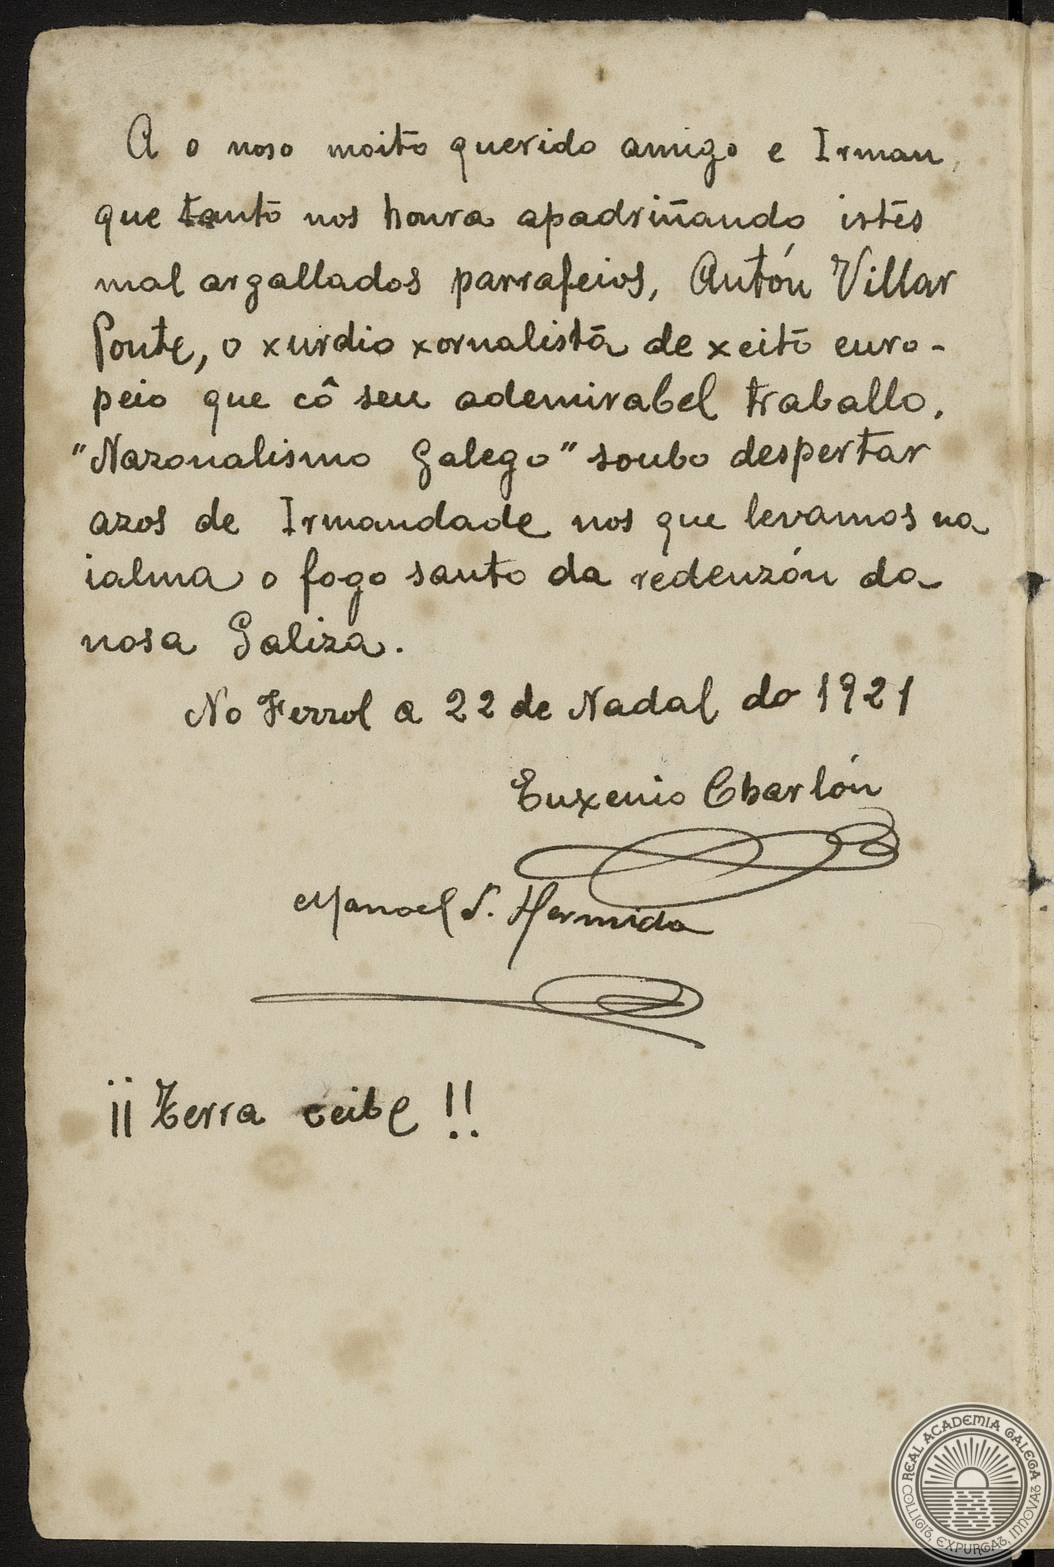 A o noso moito querido amigo e Irman,
que tanto nos honra apadriñando istes
mal argallados parrafeios, Antón Villar
Ponte, o xurdio xornalista de xeito euro-
peio que cô seu ademirabel traballo,
"Nazonalismo Galego" soubo despertar
azos de Irmandade nos que levamos na
ialma o fogo santo da redenzón da
nosa Galiza.
No Ferrol a 22 de Nadal do 1921
Euxenio Charlón
Manoel S. Hermida
¡¡Terra ceibe!!
REAL ACADEMIA GALEGA
COLLIGIT, EXPURGAT, INNOVAT